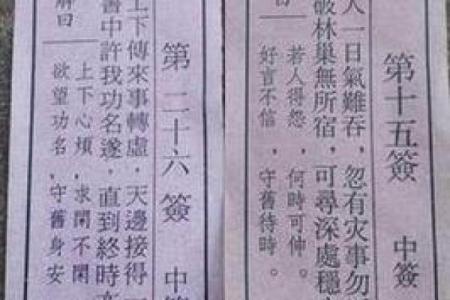 第十五簽 中簽
人一日氣難吞，忽有灾事勿
破林巢無所宿，可尋深處穩
曰
若人得怨，何時可伸。
好言不信，守舊待時。
第二十六簽 中
上下傳來事轉虛，天邊接得
書中許我功名遂，直到終時
解曰
上下心煩，求閑不閑
欲望功名，守舊身安